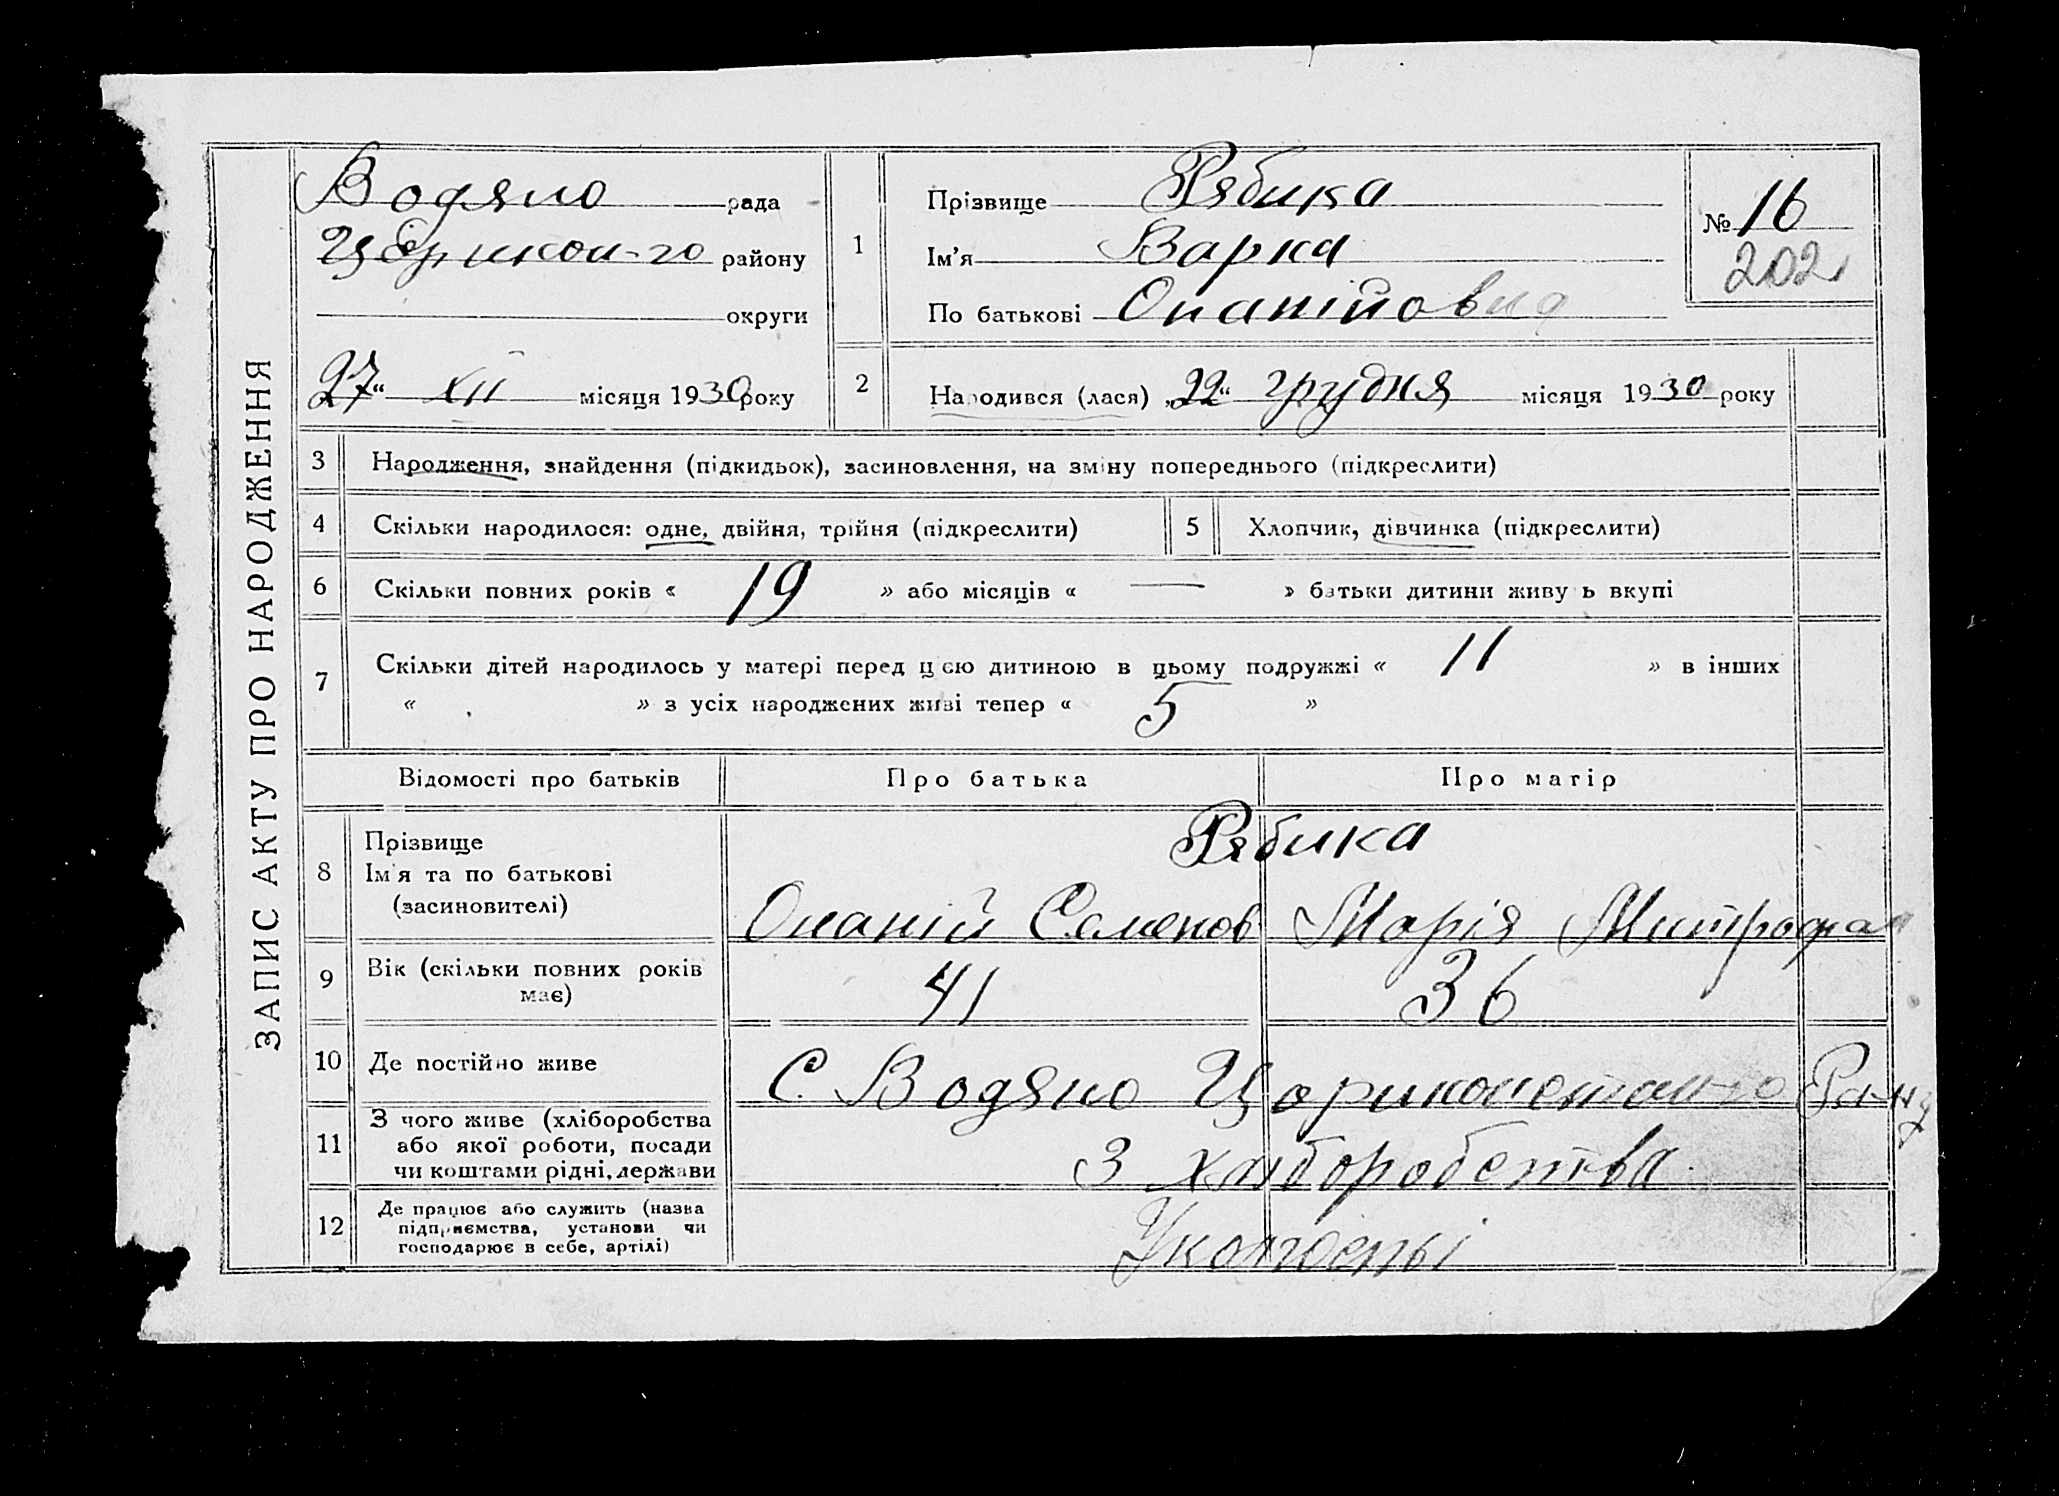 ЗАПИС АКТУ ПРО НАРОДЖЕННЯ
Водяно рада
района
округи
27 XII місяця 1930 року
1
Прізвище Рябика
Ім'я Варка
По батькові Опанійовна
№ 16
202
2 Народився (лася) „22“ грудня місяця 1930 року
3 Народження, знайдення (підкидьок), засиновлення, на зміну попереднього (підкреслити)
4 Скільки народилося: одне, двійня, трійня (підкреслити)
5 Хлопчик, дівчинка (підкреслити)
6 Скільки повних років « 19 » або місяців « — » батьки дитини живуть вкупі
7 Скільки дітей народилось у матері перед цією дитиною в цьому подружжі « 11 » в інших
« » з усіх народжених живі тепер « 5 »
Відомості про батьків Про батька Про матір
8 Прізвище
Ім'я та по батькові
(засиновителі)
Рябика
Опаній Семенов Марія Митрофан
9 Вік (скільки повних років
має)
41 36
10 Де постійно живе
С. Водяно
11 З чого живе (хліборобства
або якої роботи, посади
чи коштами рідні, держави
З хліборобства
12 Де працює або служить (назва
підприємства, установи чи
господарює в себе, артілі)